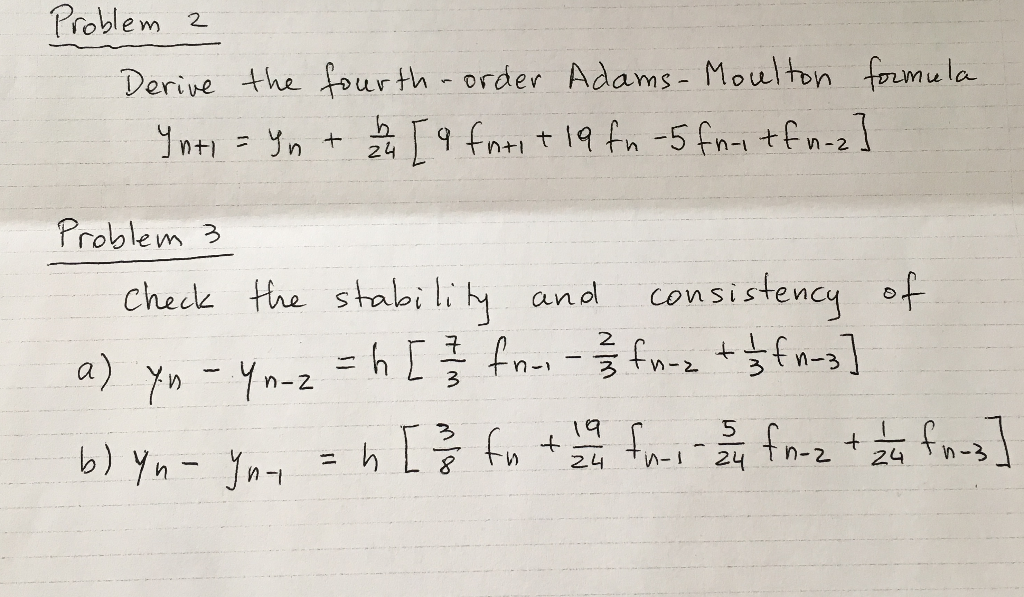 Problem 2
Derive the fourth-order Adams-Moulton formula
yn+1 = yn + h/24 [9 fn+1 + 19 fn -5 fn-1 + fn-2]
Problem 3
Check the stability and consistency of
a) yn - yn-2 = h [7/3 fn-1 - 2/3 fn-2 + 1/3 fn-3]
b) yn - yn-1 = h [3/8 fn + 19/24 fn-1 - 5/24 fn-2 + 1/24 fn-3]